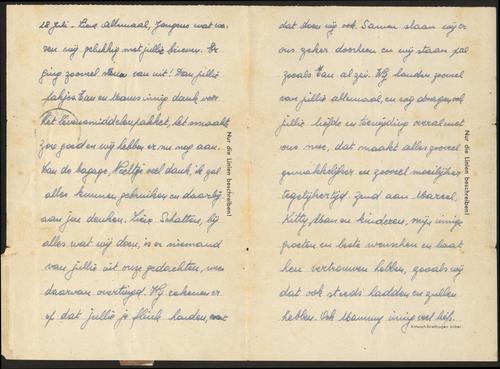 28 Juli - Lieve Allemaal, Jongens wat wa-
ren wij gelukkig met jullie brieven. Er
ging zooveel van uit! Van jullie
pakjes Han en Mams innig dank voor
het levensmiddelenpakket, het smaakt
zoo goed en wij hebben er nu nog aan.
Van de bagage, veel dank, ik zal
alles kunnen gebruiken en daarbij
aan jou denken. Lieve Schatten, bij
alles wat wij doen, is er niemand
van jullie uit onze gedachten, wees
daarvan overtuigd. Wij rekenen er
op dat jullie je flink houden,
Nur die Linien beschreiben!
dat doen wij ook. Samen slaan wij er
ons zeker doorheen en wij staan pal
zooals Han al zei. Wij houden zooveel
van jullie allemaal, en wij dragen
jullie liefde en toewijding overal met
ons mee, dat maakt alles zooveel
gemakkelijker en zooveel moeilijker
tegelijkertijd. Zend aan Marcel,
Kitty, Man en kinderen, mijn innige
groeten en beste wenschen en laat
hen vertrouwen hebben, zooals wij
dat ook steeds hadden en zullen
hebben. Ook Mammy innig veel liefs.
Nur die Linien beschreiben!